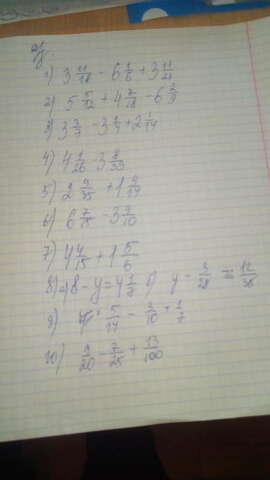 1) 3 11/18 - 6 5/6 + 3 11/21
2) 5 5/12 + 4 7/18 - 6 2/9
3) 3 2/7 - 3 1/7 + 2 1/14
4) 4 1/26 - 3 8/39
5) 2 9/35 + 1 9/14
6) 6 7/15 - 3 3/10
7) 4 4/15 + 1 5/6
8) 48 - y = 4 1/7 б) y - 3/28 = 12/35
9) 5/14 - 3/10 + 1/7
10) 9/20 - 7/25 + 13/100